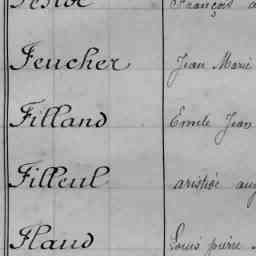 François
Feucher Jean Marie
Filland Emile Jean
Filleul aristide
Flaud Louis pierre